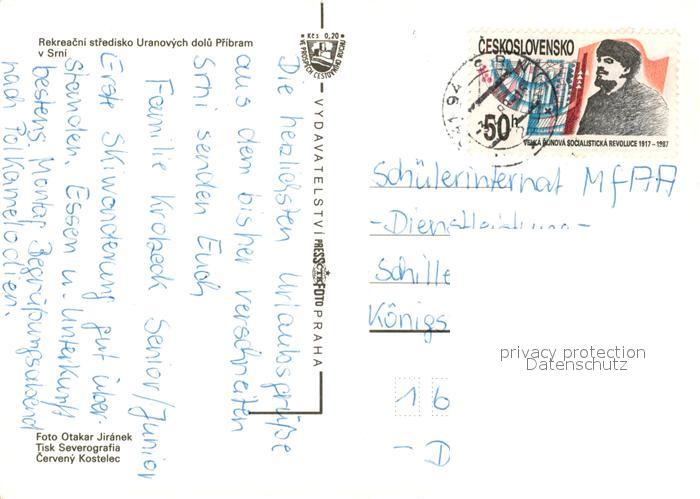 Rekreační středisko Uranových dolů Příbram
v Srní
Kčs 0,20
VE PROSPĚCH CESTOVNÍHO RUCHU
Die herzlichsten Urlaubsgrüße
aus dem bisher verschneiten
Srni senden Euch
Familie Krolzeck Senior/Junior
Erst Skiwanderung gut über-
standen. Essen u. Unterkunft
bestens, Montag Begrüßungsabend
nach Polkamelodien.
VYDAVATELSTVÍ PRESSFOTO PRAHA
Foto Otakar Jiránek
Tisk Severografia
Červený Kostelec
ČESKOSLOVENSKO
50h
VELKÁ ŘÍJNOVÁ SOCIALISTICKÁ REVOLUCE 1917–1987
341 94
Schülerinternat MfAA
- Dienstleistung -
Schille
Königs
16
- D
privacy protection
Datenschutz